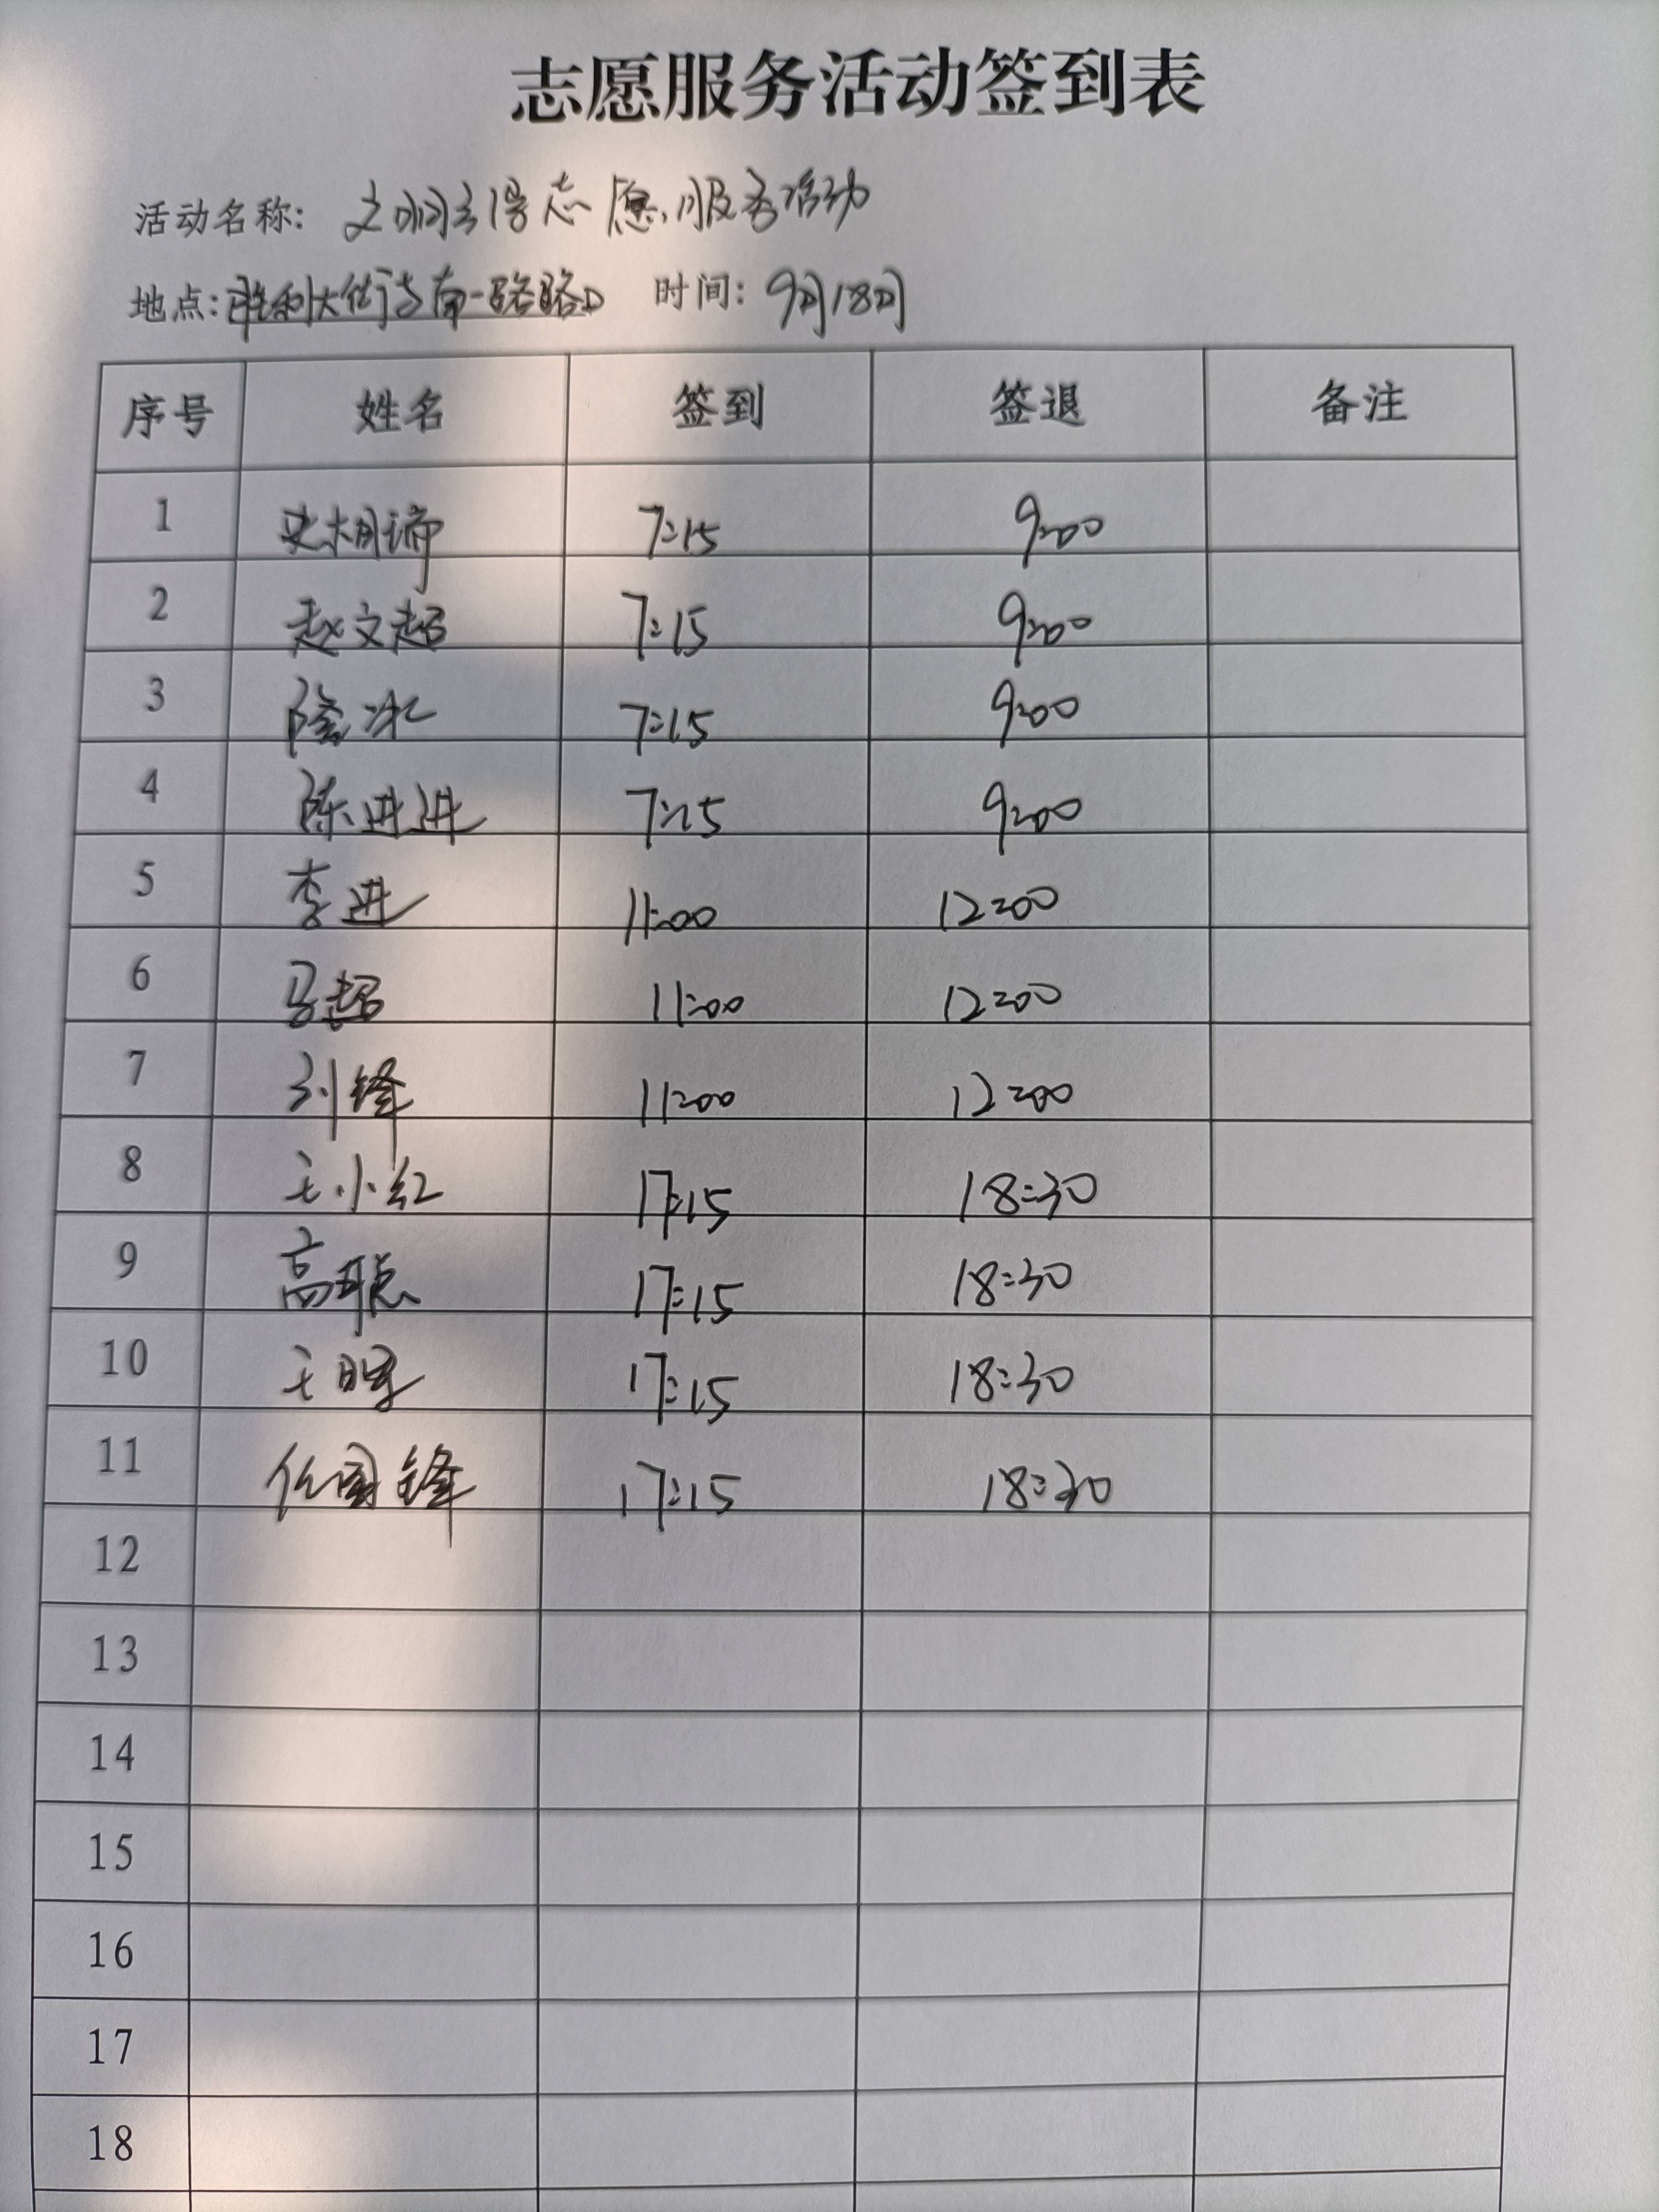 志愿服务活动签到表
活动名称: 文明引导志愿服务活动
地点: 胜利大街与南一路路口 时间: 9月18日
序号 姓名 签到 签退 备注
1 7:15 9:00
2 赵文超 7:15 9:00
3 隆冰 7:15 9:00
4 陈进进 7:15 9:00
5 李进 11:00 12:00
6 马超 11:00 12:00
7 刘锋 11:00 12:00
8 王小红 17:15 18:30
9 高聪 17:15 18:30
10 王 17:15 18:30
11 任国锋 17:15 18:30
12
13
14
15
16
17
18